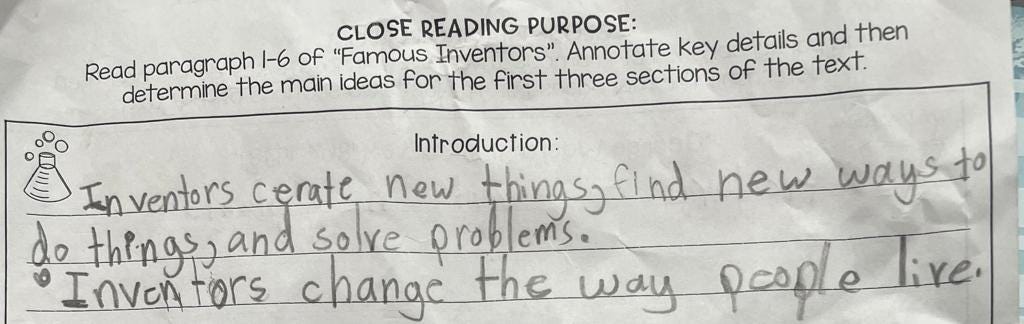 CLOSE READING PURPOSE:
Read paragraph 1-6 of "Famous Inventors". Annotate key details and then
determine the main ideas for the first three sections of the text.
Introduction:
Inventors cerate new things, find new ways to
do things, and solve problems.
• Inventors change the way people live.